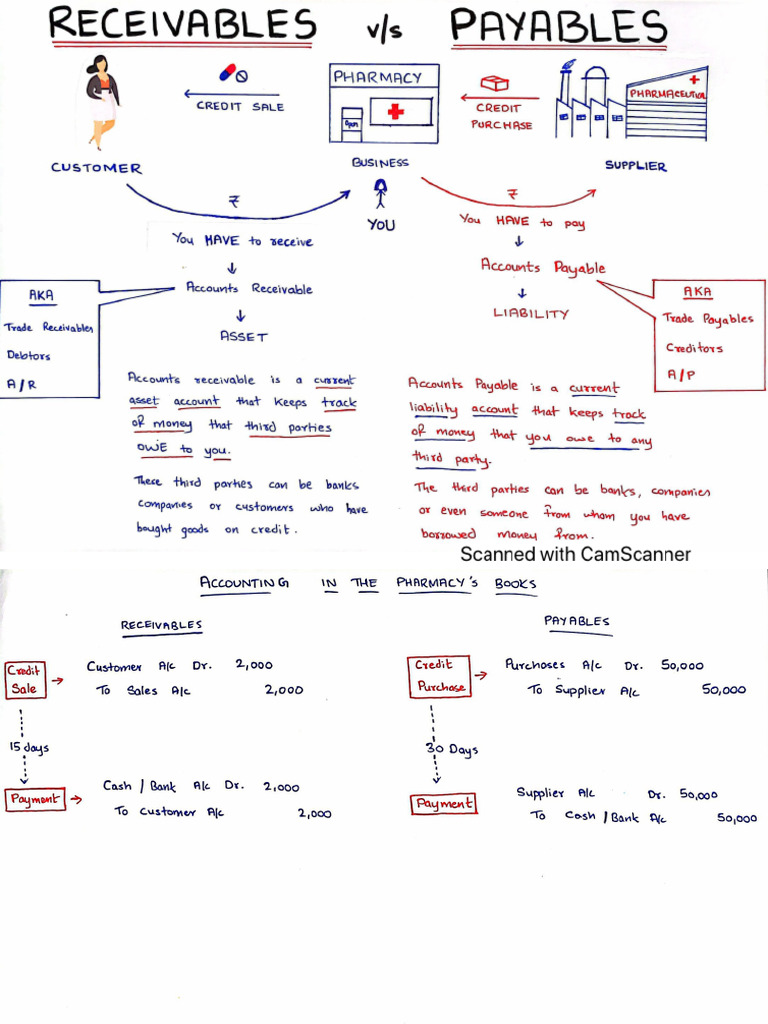 RECEIVABLES v/s PAYABLES
PHARMACY
Open
CREDIT SALE
CREDIT
PURCHASE
PHARMACEUTICAL
CUSTOMER
BUSINESS
SUPPLIER
YOU
₹
You HAVE to receive
Accounts Receivable
ASSET
₹
You HAVE to pay
Accounts Payable
LIABILITY
AKA
Trade Receivables
Debtors
A/R
AKA
Trade Payables
Creditors
A/P
Accounts receivable is a current
asset account that keeps track
of money that third parties
OWE to you.
These third parties can be banks
companies or customers who have
bought goods on credit.
Accounts Payable is a current
liability account that keeps track
of money that you owe to any
third party.
The third parties can be banks, companies
or even someone from whom you have
borrowed money from.
Scanned with CamScanner
ACCOUNTING IN THE PHARMACY'S BOOKS
RECEIVABLES
Credit
Sale
Customer A/c Dr. 2,000
To Sales A/c 2,000
15 days
Payment
Cash / Bank A/c Dr. 2,000
To Customer A/c 2,000
PAYABLES
Credit
Purchase
Purchases A/c Dr. 50,000
To Supplier A/c 50,000
30 Days
Payment
Supplier A/c Dr. 50,000
To Cash / Bank A/c 50,000